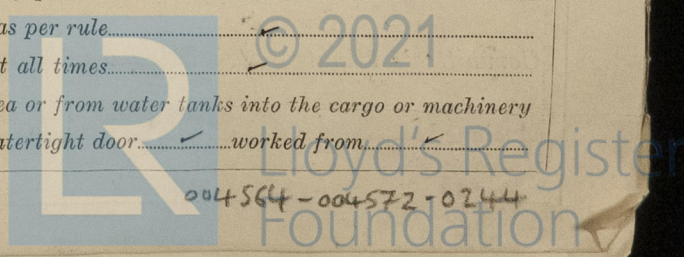 as per rule ✓
t all times ✓
ea or from water tanks into the cargo or machinery
atertight door ✓ worked from ✓
004564-004572-0244
LR
© 2021
Lloyd's Register
Foundation